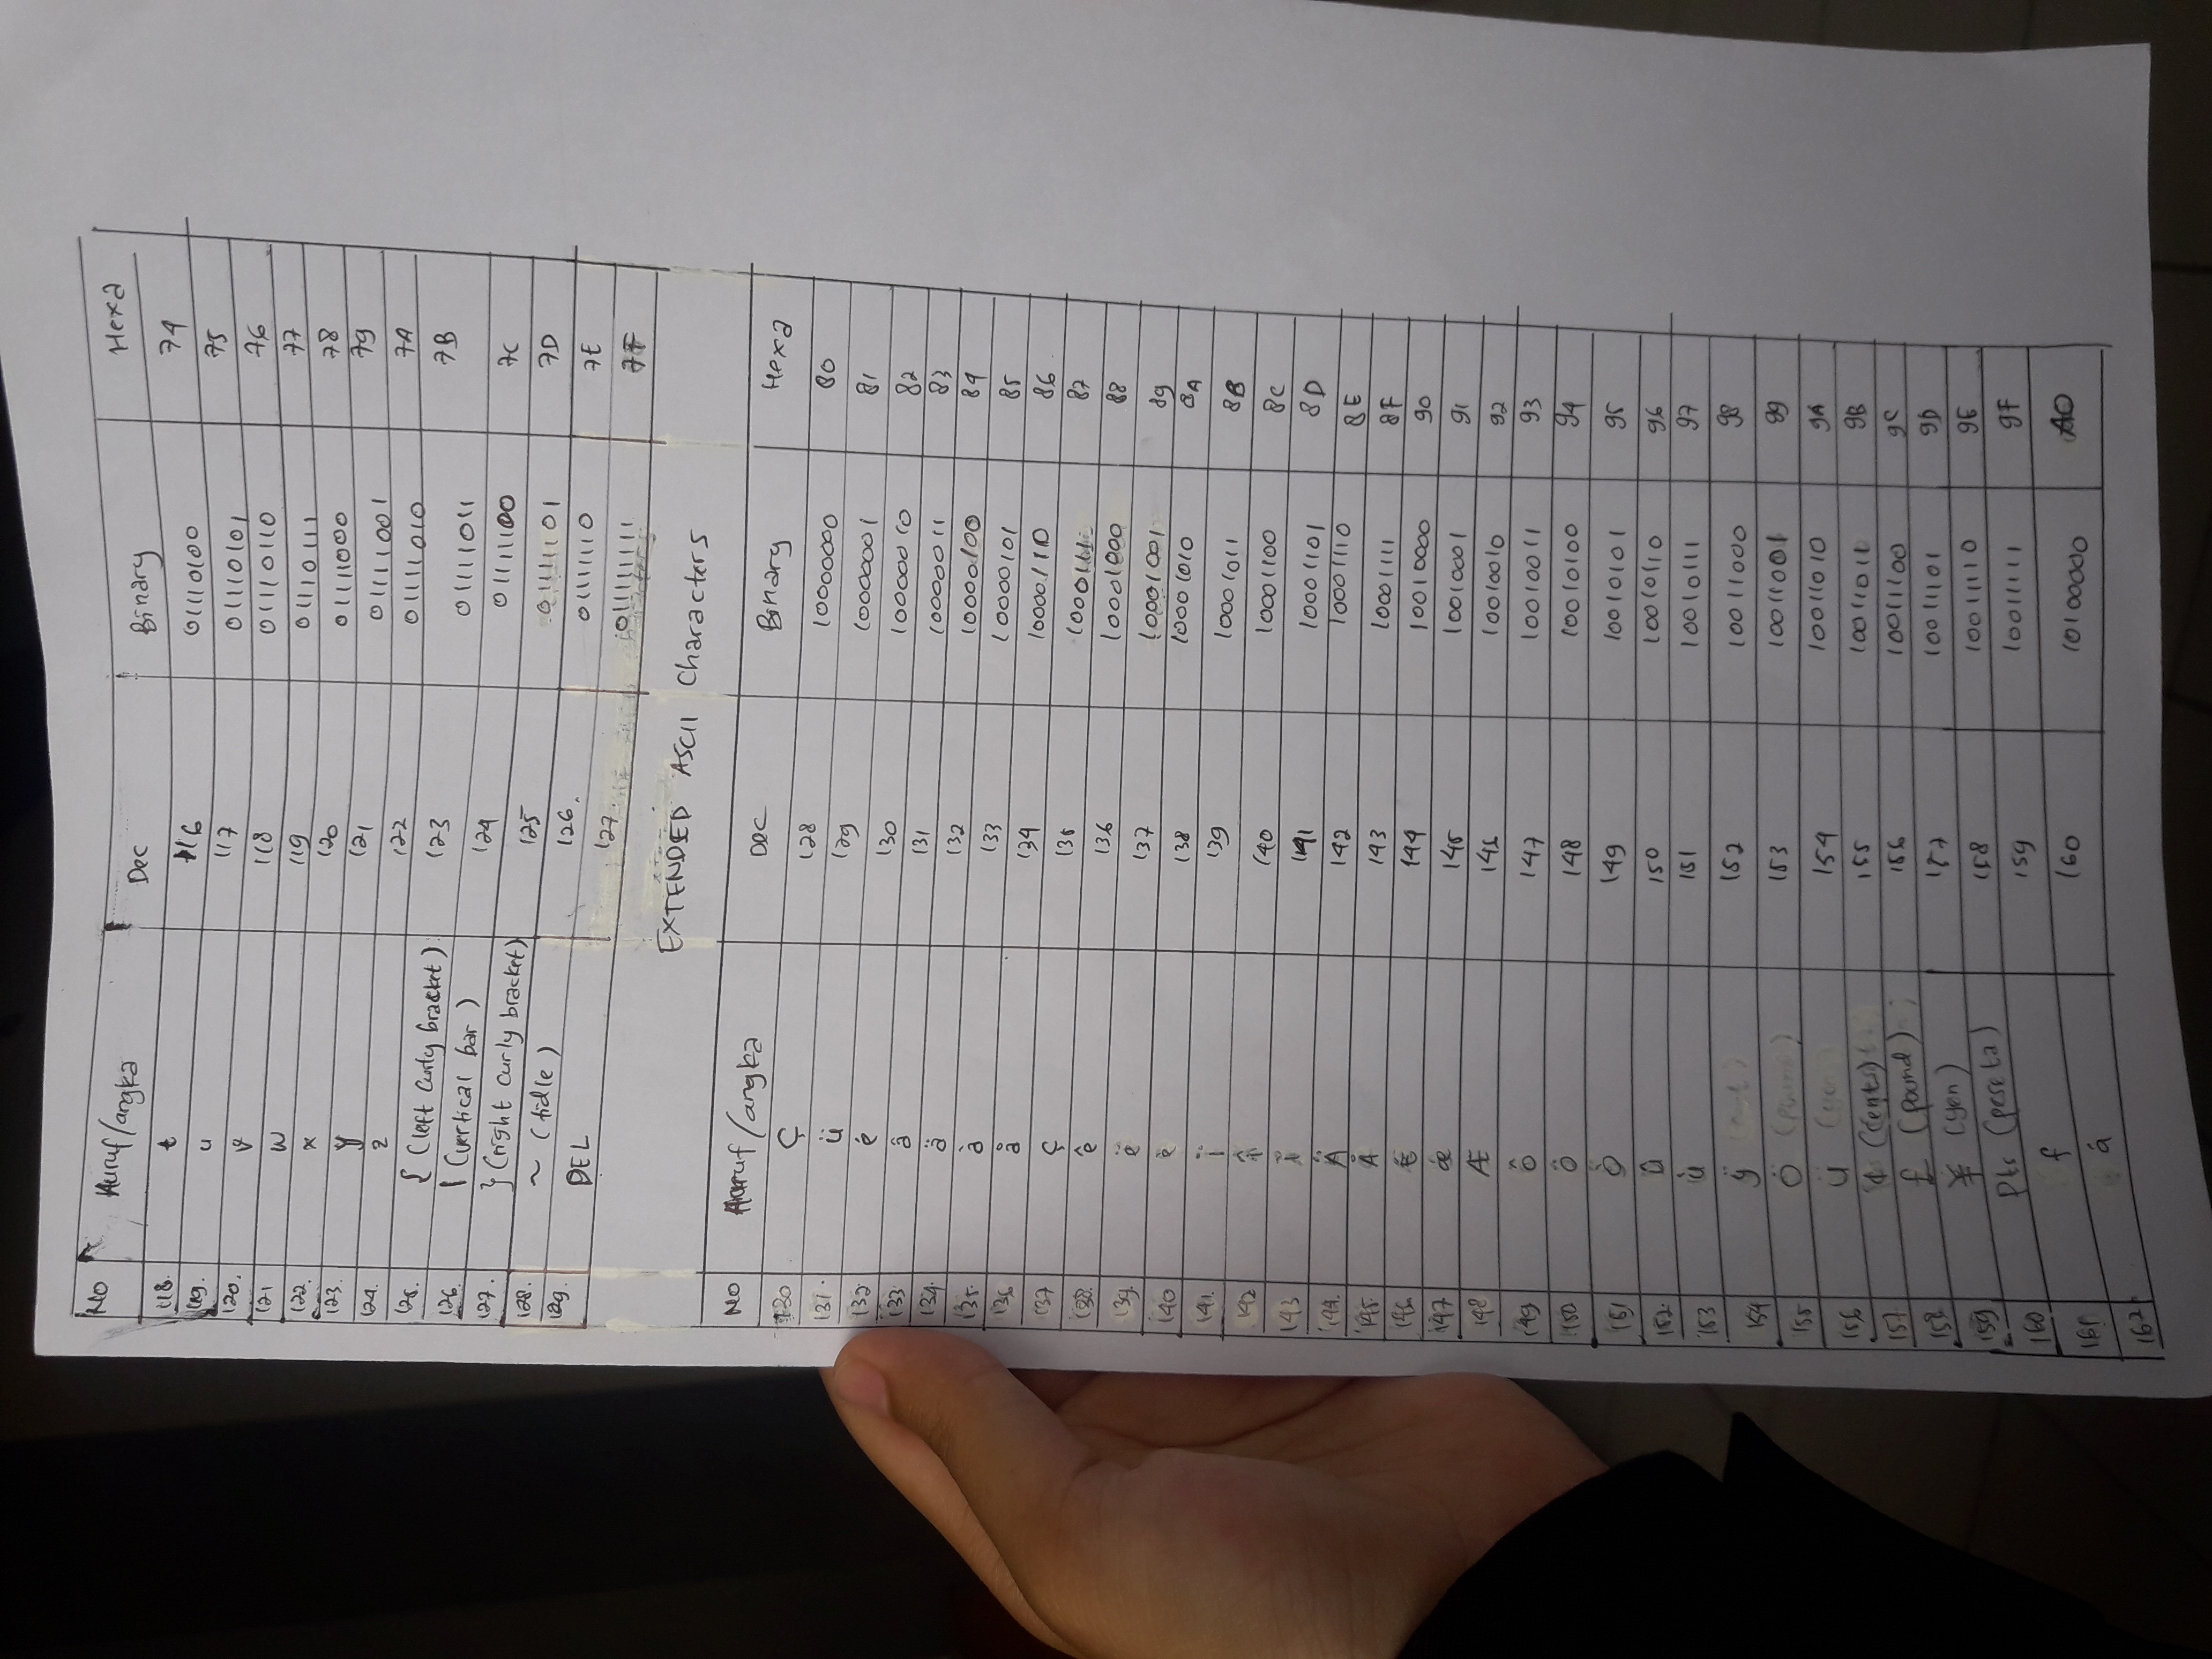 No Huruf/angka Dec Binary Hexa
118. t 116 01110100 74
119. u 117 01110101 75
120. v 118 01110110 76
121 w 119 01110111 77
122. x 120 01111000 78
123. y 121 01111001 79
124. z 122 01111010 7A
125. { (left curly bracket) 123 01111011 7B
126. | (vertical bar) 124 01111100 7C
127. } (right curly bracket) 125 01111101 7D
128. ~ (tidle) 126. 01111110 7E
129. DEL 127. 011111111 7F
EXTENDED ASCII Characters
No Huruf/angka Dec Binary Hexa
130 Ç 128 10000000 80
131. ü 129 10000001 81
132. é 130 10000010 82
133. â 131 10000011 83
134. ä 132 10000100 84
135. à 133 10000101 85
136 å 134 10000110 86
137 ç 135 1000111 87
138. ê 136 10001000 88
139. ë 137 10001001 89
140 è 138 10001010 8A
141. ï 139 10001011 8B
142 î 140 10001100 8C
143 141 10001101 8D
144. Ä 142 10001110 8E
145. Å 143 10001111 8F
146 144 10010000 90
147 æ 145 10010001 91
148 Æ 146 10010010 92
149 ô 147 10010011 93
150 ö 148 10010100 94
151 149 10010101 95
152. 150 10010110 96
153 ù 151 10010111 97
154 ÿ 152 10011000 98
155 Ö 153 10011001 99
156 Ü 154 10011010 9A
157 ¢ (cents) 155 10011011 9B
158 £ (pound) 156 10011100 9C
159 ¥ (yen) 157 10011101 9D
160 Pts (peseta) 158 10011110 9E
161 f 159 10011111 9F
162 á 160 10100000 A0